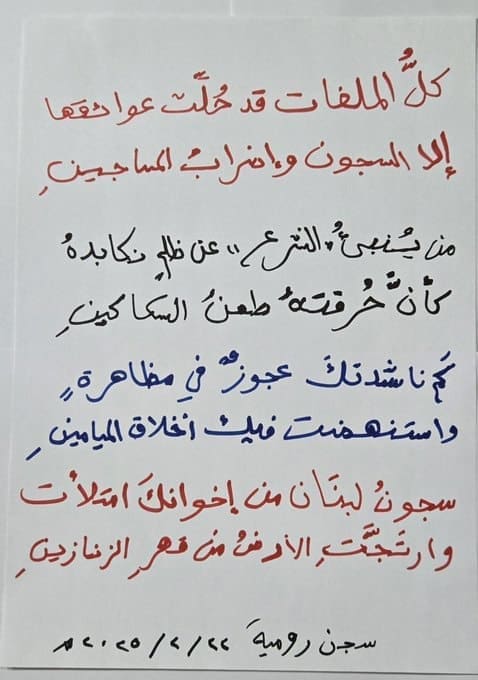 كلُّ الملفات قد حُلَّت عوائقها
إلا السجون وإضرابُ المساجينِ
من يُنبئُ "الشرع" عن ظلمٍ نكابدهُ
كأنَّ حُرقتهُ طعنُ السكاكينِ
كم ناشدتكَ عجوزٌ في مظاهرةٍ
واستنهضت فيك أخلاق الميامينِ
سجونُ لبنان من إخوانكَ امتلأت
وارتجَّتِ الأرضُ من قهرِ الزنازينِ
سجن رومية ٢٠٢٥/٢/٢٢م